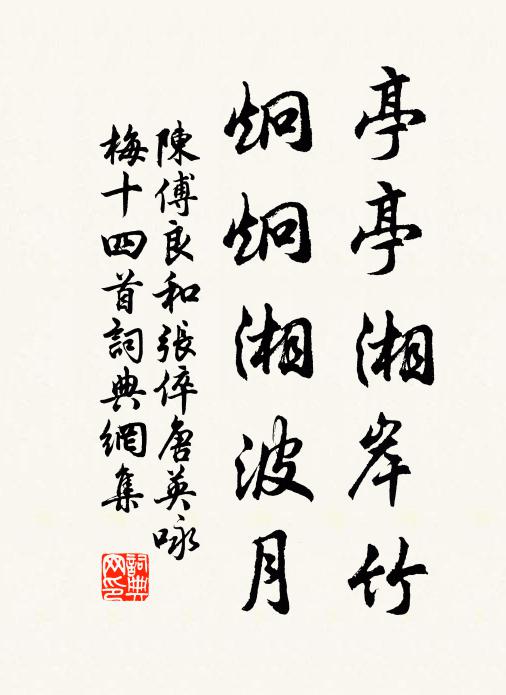 亭亭湘岸竹
炯炯湘波月
陳傅良和張倅唐英咏
梅十四首詞典網集
詞典
网印